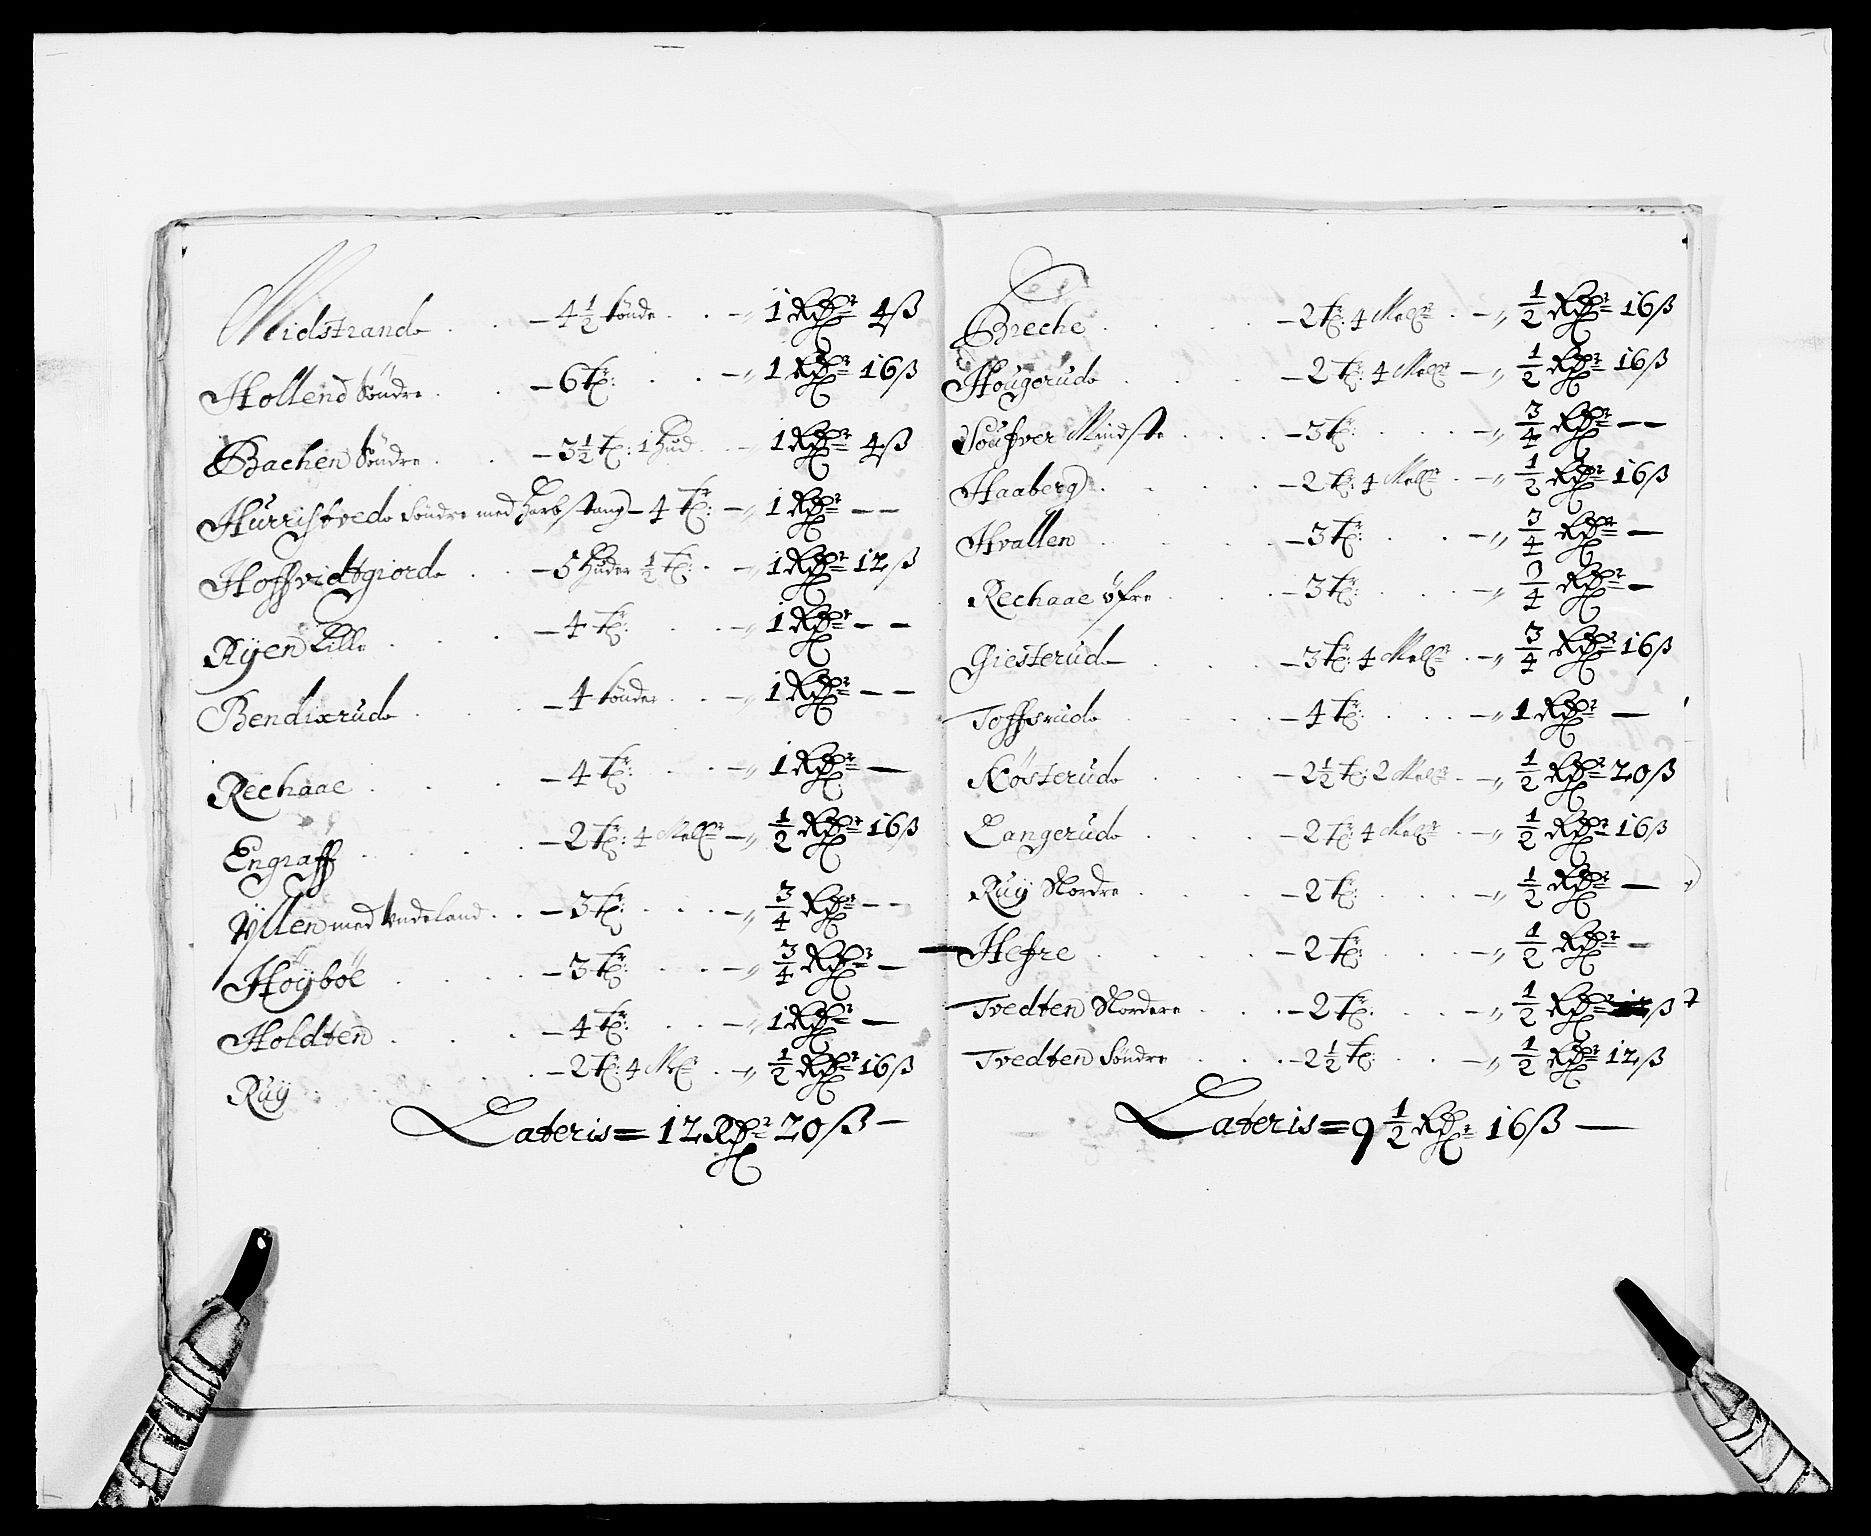 Midstrand . . – 4 1/2 tönde . . –„ 1 Rdr 4ß
Hollend Söndre . . – 6 tr: . . –„ 1 Rdr 16ß
Bachen Söndre . . – 3 1/2 tr: 1 hud . –„ 1 Rdr 4ß
Hurristved Söndre med – 4 tr: –„ 1 Rdr – –
Hoffvidtgiord . . – 5 huder 1/2 tr: . –„ 1 Rdr 12ß
Ryen Lille . . . – 4 tr: . . –„ 1 Rdr – –
Bendixrud . . . – 4 tönder . . –„ 1 Rdr – –
Rechaae . . . – 4 tr: . . –„ 1 Rdr –
Engraff . . . . – 2 tr: 4 Melr –„ 1/2 Rdr 16ß
Yllen med Vndeland . . – 3 tr: . . . –„ 3/4 Rdr – –
Höyböe . . . – 3 tr: . . . –„ 3/4 Rdr –
Holdten . . . . – 4 tr: . . –„ 1 Rdr –
Ruy . . . – 2 tr: 4 Mlr . –„ 1/2 Rdr 16ß
Lateris = 12 Rdr 20ß –
Breche . . . . – 2 tr: 4 Melr . –„ 1/2 Rdr 16ß
Hougerud . . . . – 2 tr: 4 Melr –„ 1/2 Rdr 16ß
Mindste . . . – 3 tr: . . . –„ 3/4 Rdr – –
Haaberg . . . . – 2 tr: 4 Melr . –„ 1/2 Rdr 16ß
Hvallen . . . – 3 tr: . . –„ 3/4 Rdr –
Rechaae öfre . . . – 3 tr: . . . –„ 3/4 Rdr –
Giesterud . . . – 3 tr: 4 Melr . –„ 3/4 Rdr 16ß
Toffsrud . . . . – 4 tr: . . . –„ 1 Rdr –
Kösterud . . . – 2 1/2 tr: 2 Melr . –„ 1/2 Rdr 20ß
Langerud . . . – 2 tr: 4 Melr . –„ 1/2 Rdr 16ß
Ruy Nordre . . . . – 2 tr: . . . –„ 1/2 Rdr –
Hefre . . . . – 2 tr: . . . –„ 1/2 Rdr –
Tvedten Nordere . . . – 2 tr: . . –„ 1/2 Rdr ß
Tvedten Söndre . . . – 2 1/2 tr: . . –„ 1/2 Rdr 12ß
Lateris = 9 1/2 Rdr 16ß –